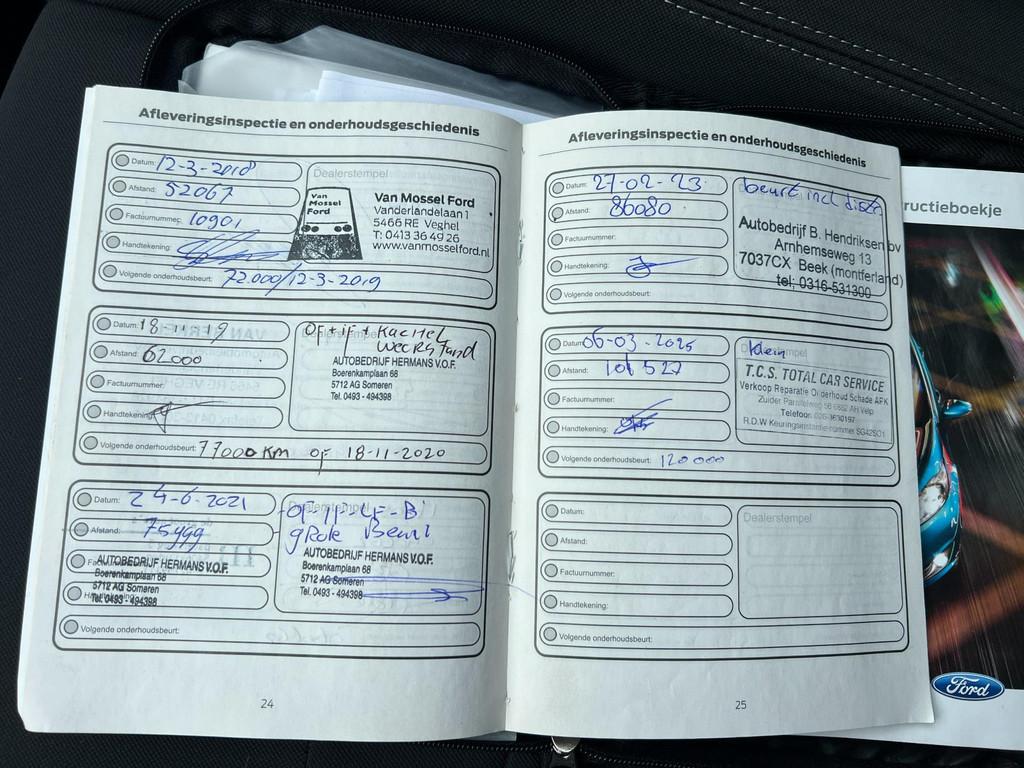 Afleveringsinspectie en onderhoudsgeschiedenis
Datum: 12-3-2018
Afstand: 52067
Factuurnummer: 10901
Handtekening:
Volgende onderhoudsbeurt: 72.000/12-3-2019
Dealerstempel
Van Mossel Ford
Van Mossel Ford
Vanderlandelaan 1
5466 RE Veghel
T: 0413 36 49 26
www.vanmosselford.nl
Datum: 18-11-19
Afstand: 62000
Factuurnummer:
Handtekening:
Volgende onderhoudsbeurt: 77000 KM OF 18-11-2020
OF + IF + Kachel
AUTOBEDRIJF HERMANS V.O.F.
Boerenkamplaan 68
5712 AG Someren
Tel. 0493 - 494398
Datum: 24-6-2021
Afstand: 75999
AUTOBEDRIJF HERMANS V.O.F.
Boerenkamplaan 68
5712 AG Someren
Tel. 0493 - 494398
Volgende onderhoudsbeurt:
grote Beurt
AUTOBEDRIJF HERMANS V.O.F.
Boerenkamplaan 68
5712 AG Someren
Tel. 0493 - 494398
24
Afleveringsinspectie en onderhoudsgeschiedenis
Datum: 27-02-23
Afstand: 86080
Factuurnummer:
Handtekening:
Volgende onderhoudsbeurt:
beurt incl
Autobedrijf B. Hendriksen bv
Arnhemseweg 13
7037CX Beek (montferland)
tel; 0316-531300
Datum: 06-03-2025
Afstand: 101527
Factuurnummer:
Handtekening:
Volgende onderhoudsbeurt: 120000
Klein
T.C.S. TOTAL CAR SERVICE
Verkoop Reparatie Onderhoud Schade APK
Zuider Parallelweg 56 6882 AH Velp
Telefoon: 026-3630197
R.D.W Keuringsinstantie-nummer
Datum:
Afstand:
Factuurnummer:
Handtekening:
Volgende onderhoudsbeurt:
Dealerstempel
25
ructieboekje
Ford